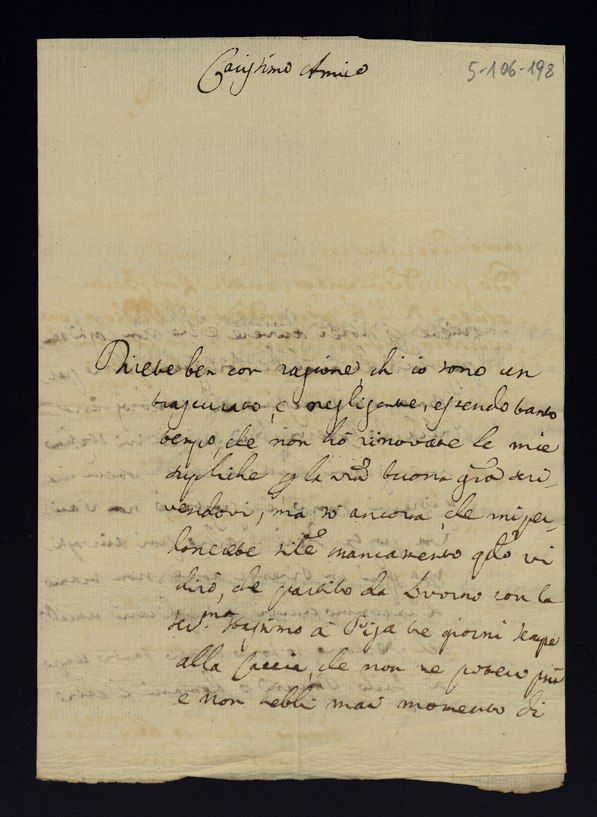 Carissimo Amico
5-106-198
Direte ben con ragione ch'io sono un
trascurato, e negligente, essendo tanto
tempo, che non hò rinovate le mie
supliche p la vrã buona grã scri-
vendovi, ma sò ancora, che mi per-
donerete mancamento qdo vi
dirò, che partito da Livorno con la
Ser.ma stassimo à Pisa tre giorni sempre
alla Caccia, che non ne potevo più
e non hebbi mai momento di